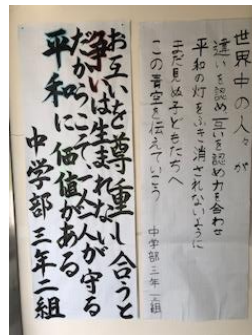 世界中の人々が
違いを認め互いを認め力を合わせ
平和の灯をふき消されないように
まだ見ぬ子どもたちへ
この青空を伝えていこう
中学部三年一組
お互いを尊重し合うと
争いは生まれない
だからこそ一人一人が守る
平和に価値がある
中学部三年二組